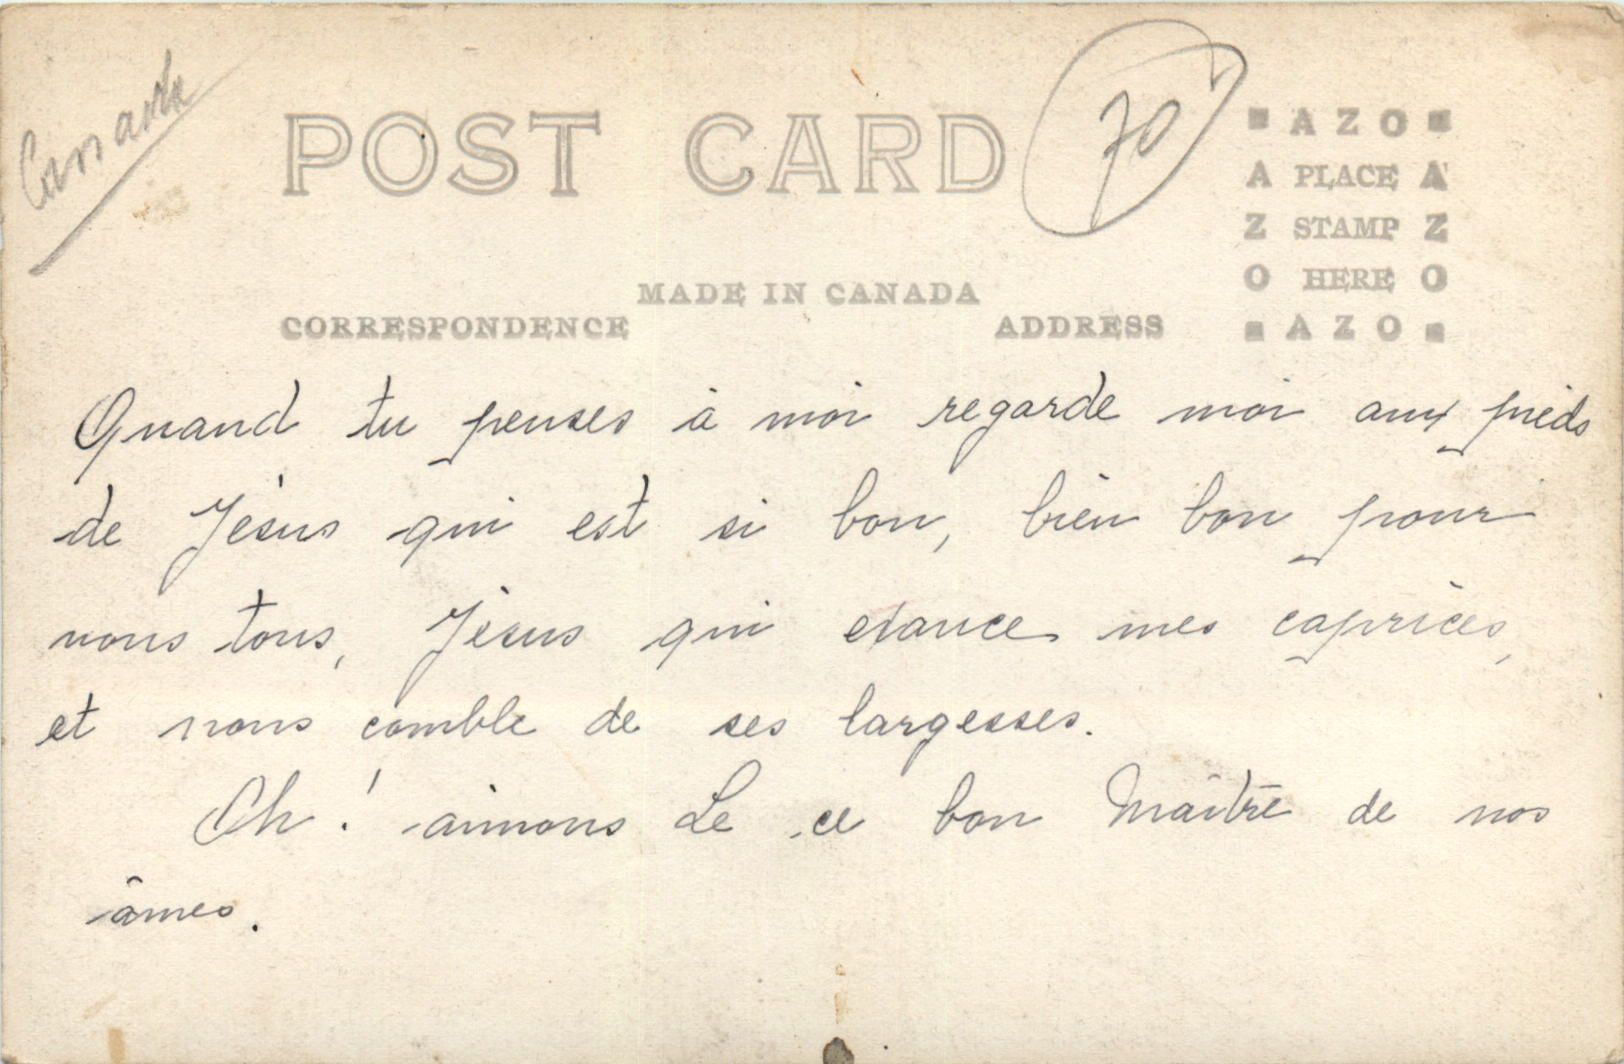 Canada
POST CARD
70
AZO
A PLACE A
Z STAMP Z
O HERE O
AZO
MADE IN CANADA
CORRESPONDENCE
ADDRESS
Quand tu penses à moi regarde moi aux pieds
de Jésus qui est si bon, bien bon pour
nous tous, Jésus qui exauce mes caprices,
et nous comble de ses largesses.
Oh! aimons Le ce bon Maître de nos
âmes.